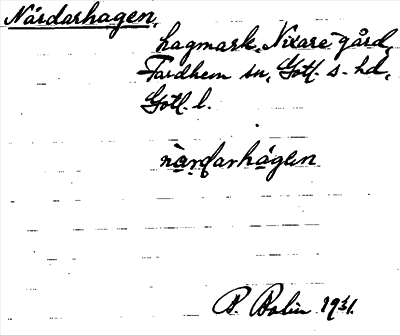 Nårdarhagen,
hagmark, Nixare gård,
Fardhem sn, Gotl. s. hd,
Gotl. l.
nàrdarhágen
R. Bolin 1931.